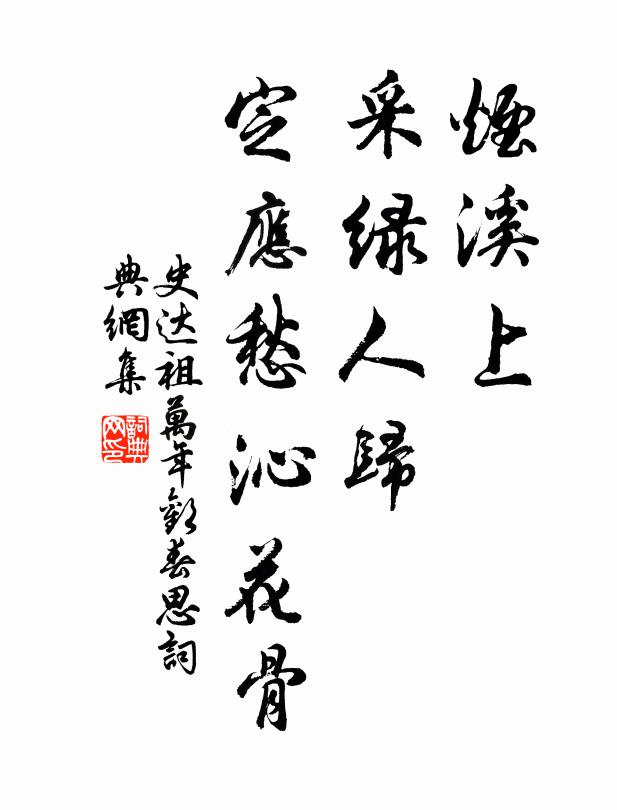 煙溪上
采緑人歸
定應愁沁花骨
史达祖萬年歡春思詞
典網集
詞典網印